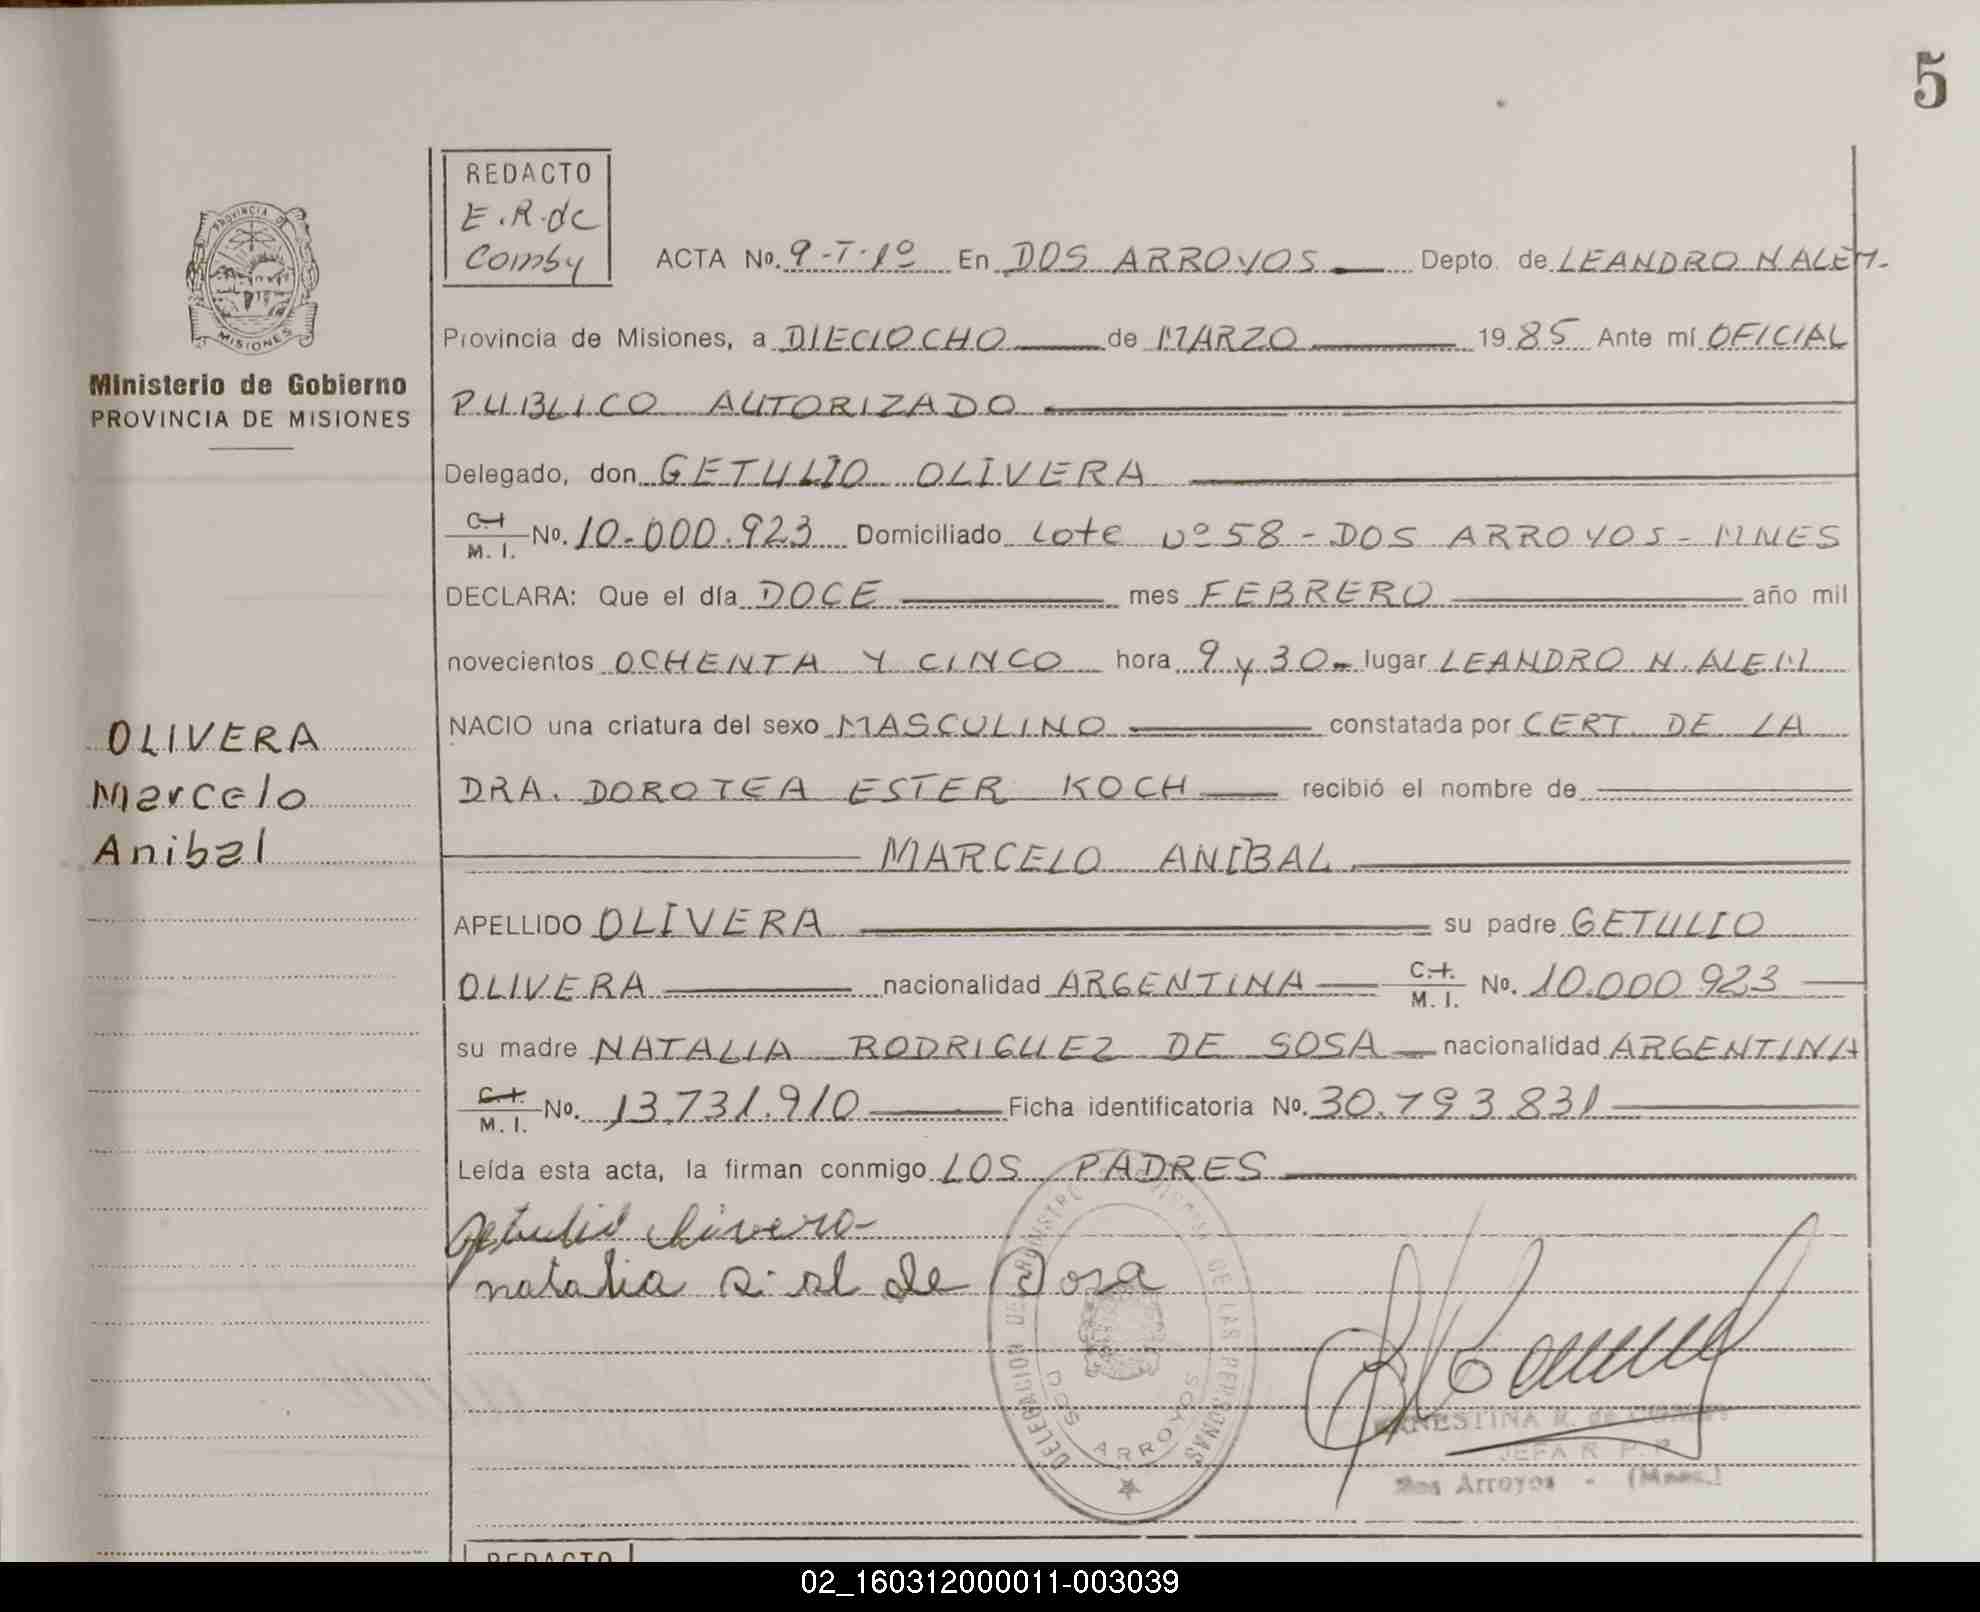 5
REDACTO
E.R.de
Comby
ACTA No. 9-T-1º En DOS ARROYOS Depto. de LEANDRO N ALEM.
PROVINCIA DE
MISIONES
Provincia de Misiones, a DIECIOCHO de MARZO 1985 Ante mí OFICIAL
Ministerio de Gobierno
PROVINCIA DE MISIONES
PUBLICO AUTORIZADO
Delegado, don GETULIO OLIVERA
C.I. M. I. No. 10.000.923 Domiciliado Lote nº 58 - DOS ARROYOS - MNES
DECLARA: Que el día DOCE mes FEBRERO año mil
novecientos OCHENTA Y CINCO hora 9 y 30 lugar LEANDRO N. ALEM
NACIO una criatura del sexo MASCULINO constatada por CERT. DE LA
DRA. DOROTEA ESTER KOCH recibió el nombre de
MARCELO ANIBAL
OLIVERA
Marcelo
Anibal
APELLIDO OLIVERA su padre GETULIO
OLIVERA nacionalidad ARGENTINA C.I. M. I. No. 10.000.923
su madre NATALIA RODRIGUEZ DE SOSA nacionalidad ARGENTINA
C.I. M. I. No. 13.731.910 Ficha identificatoria No. 30.793.831
Leída esta acta, la firman conmigo LOS PADRES
Getulio Olivera
natalia de Sosa
DELEGACION DE LAS PERSONAS
DOS ARROYOS
ERNESTINA R. de COMBY
JEFA R. P. P.
Dos Arroyos - (Mnes.)
REDACTO
02_160312000011-003039